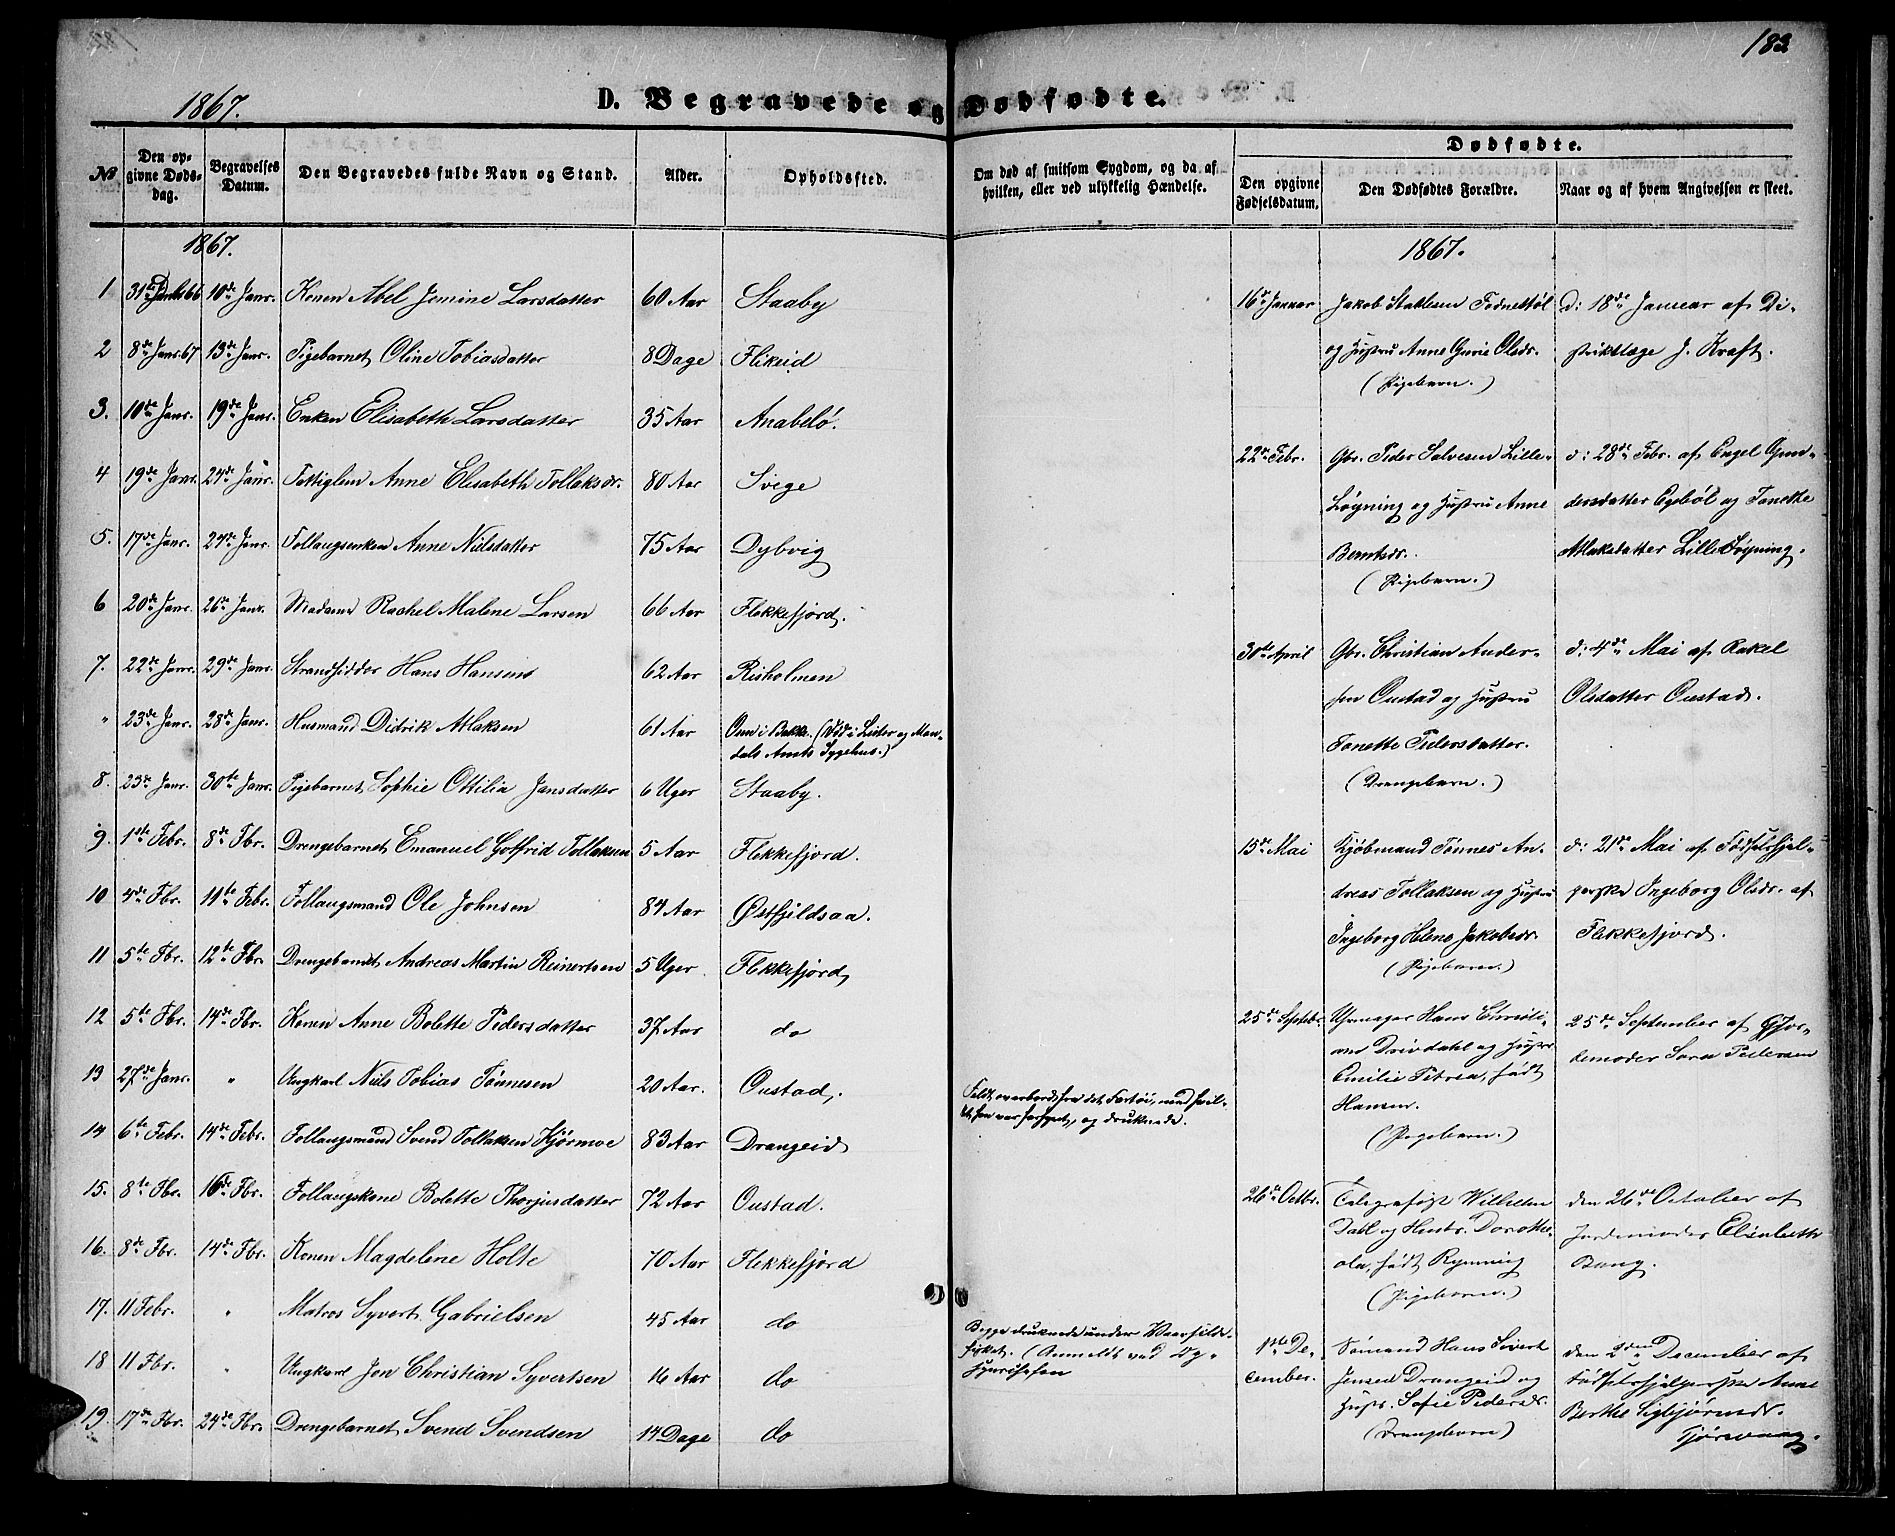 183
1867.
D. Begravede og Dødfødte.
Dødfødte.
No
Den opgivne Dødsdag.
Begravelses Datum.
Den Begravedes fulde Navn og Stand.
Alder.
Opholdssted.
Om død af smitsom Sygdom, og da af hvilken, eller ved ulykkelig Hændelse.
Den opgivne Fødselsdatum.
Den Dødfødtes Forældre.
Naar og af hvem Angivelsen er skeet.
1867.
1 10de Janr. Konen Abel Jemine Larsdatter 60 Aar Staaby
2 8de Janr. 67 13de Janr. Pigebarnet Oline Tobiasdatter 8 Dage Flikeid
3. 10de Janr. 19de Janr. Enken Elisabeth Larsdatter 35 Aar Anabelø.
4 19de Janr. 24de Janr. Fattiglem Anne Elisabeth Tollaksdr. 80 Aar Svege
5. 17de Janr. 27de Janr. Follaugsenken Anne Nilsdatter 75 Aar Dybvig
6 20de Janr. 26de Janr. Madame Rachel Malene Larsen 66 Aar Flekkefjord.
7. 22de Janr. 29de Janr. Strandsidder Hans Hansen 62 Aar Risholmen
" 23de Janr. 28de Janr. Husmand Didrik Atlaksen 61 Aar Oun i Bakke. (Død i Lister og Mandals Amts Sygehus.)
8. 23de Janr. 30te Janr. Pigebarnet Sophie Ottilia Jansdatter 6 Uger Staaby.
9. 1ste Febr. 8de Fbr. Drengebarnet Emanuel Gotfrid Tollaksen 5 Aar Flekkefjord.
10 4de Fbr. 11te Febr. Follaugsmand Ole Johnsen 84 Aar Østfjeldsaa.
11 5te Fbr. 12te Fbr. Drengebarnet Andreas Martin Reinertsen 5 Uger. Flekkefjord
12 5te Fbr. 14de Fbr. Konen Anne Bolette Pedersdatter 37 Aar do
13 27de Janr. " Ungkarl Nils Tobias Tønnesen 20 Aar. Oustad.
Faldt overbord fra det Fartøi, med hvilket han var forhyret, og druknede.
14 6te Febr. 14de Febr. Follaugsmand Svend Tollaksen Hjørmoe 83 Aar Drangeid
15. 8te Fbr. 16de Fbr. Follaugskone Bolette Thorjusdatter 72 Aar Oustad.
16. 8de Fbr. 14de Fbr. Konen Magdelene Holte 70 Aar Flekkefjord
17. 11 Febr. " Matros Syvert Gabrielsen 45 Aar do
Begge druknede under Vaarsildefisket. (Anmeldt ved
18 11 Fbr. " Ungkarl Jon Christian Syvertsen 16 Aar do
19. 17de Fbr. 24de Fbr. Drengebarnet Svend Svendsen 14 Dage do
1867.
16de Januar Jakob Stahlesen
og Hustru Anne Gurie Olsdr.
(Pigebarn.)
d: 18de Januar af Di-
striktslæge J. Kraft.
22de Febr. Gbr. Peder Salvesen Lille-
Løgning og Hustru Anne
Berntsdr.
(Pigebarn.)
d: 28de Febr. af Engel Gun-
dersdatter Egebøl og Tanette
Atlaksdatter Lille Løgning.
30te April Gbr. Christian Ander-
sen Oustad og Hustru
Tanette Pedersdatter.
(Drengebarn.)
d: 4de Mai af Rakel
Olsdatter Oustad.
15de Mai Kjøbmand Tønnes An-
dreas Tollaksen og Hustru
Ingeborg Helene Jakobsdr.
(Pigebarn.)
d: 21de Mai af Fødselshjæl-
perske Ingeborg Olsdr. af
Flekkefjord.
25de Septebr. Uhrmager Hans Christi-
an Drivdahl og Hustr.
Emilie Petrea, født
Hansen.
(Pigebarn.)
25de September af Gjor-
demoder Sara Pedersen
26de Octbr. Telegrafist Wilhelm
Dahl og Hustr. Dorothe-
ola, født Rynning
(Pigebarn.)
den 26de October af
Jordemoder Elisabeth
Bang.
1ste De-
cember. Sømand Hans Sivert
Jensen Drangeid og
Hustr. Sofie Pedersdr.
(Drengebarn)
den 2den December af
Fødselshjelperske Anne
Berthe Sigbjørnsdr.